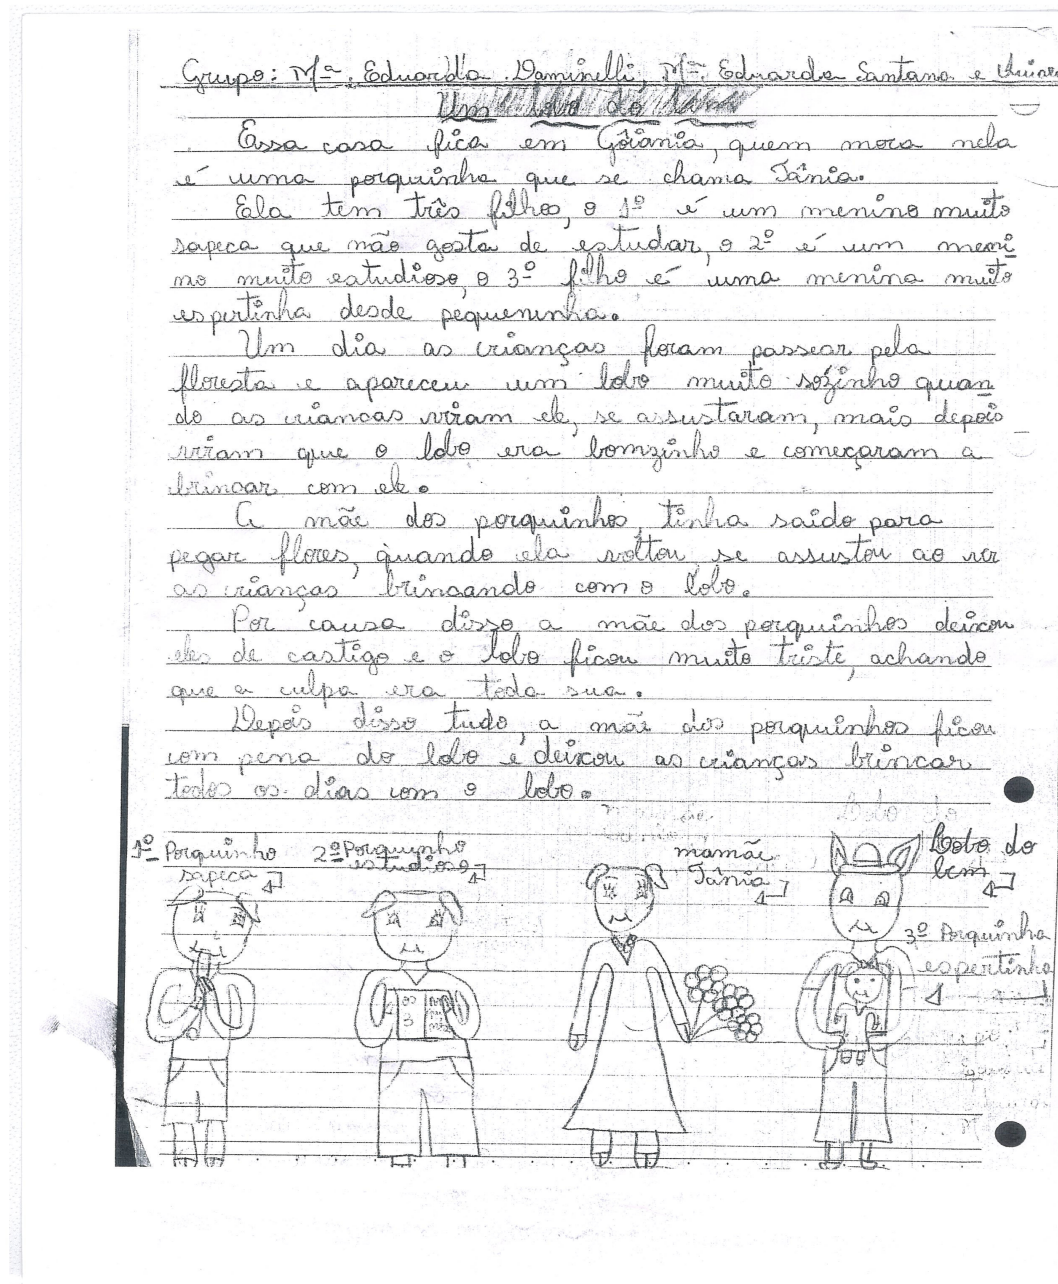 Grupo: Mª. Eduarda Daminelli, Mª. Eduarda Santana e
Um lobo do bem
Essa casa fica em Goiânia, quem mora nela
é uma porquinha que se chama Tânia.
Ela tem três filhos, o 1º é um menino muito
sapeca que não gosta de estudar, o 2º é um meni
no muito estudioso, o 3º filho é uma menina muito
espertinha desde pequeninha.
Um dia as crianças foram passear pela
floresta e apareceu um lobo muito sozinho quan
do as criancas viram ele, se assustaram, mais depois
viram que o lobo era bomzinho e começaram a
brincar com ele.
A mãe dos porquinhos, tinha saído para
pegar flores, quando ela voltou, se assustou ao ver
as crianças brincando com o lobo.
Por causa disso a mãe dos porquinhos deixou
eles de castigo e o lobo ficou muito triste, achando
que a culpa era toda sua.
Depois disso tudo, a mãe dos porquinhos ficou
com pena do lobo e deixou as crianças brincar
todos os dias com o lobo.
1º Porquinho
sapeca
2º Porquinho
estudioso
mamãe
Tânia
Lobo do
bem
3º Porquinha
espertinha